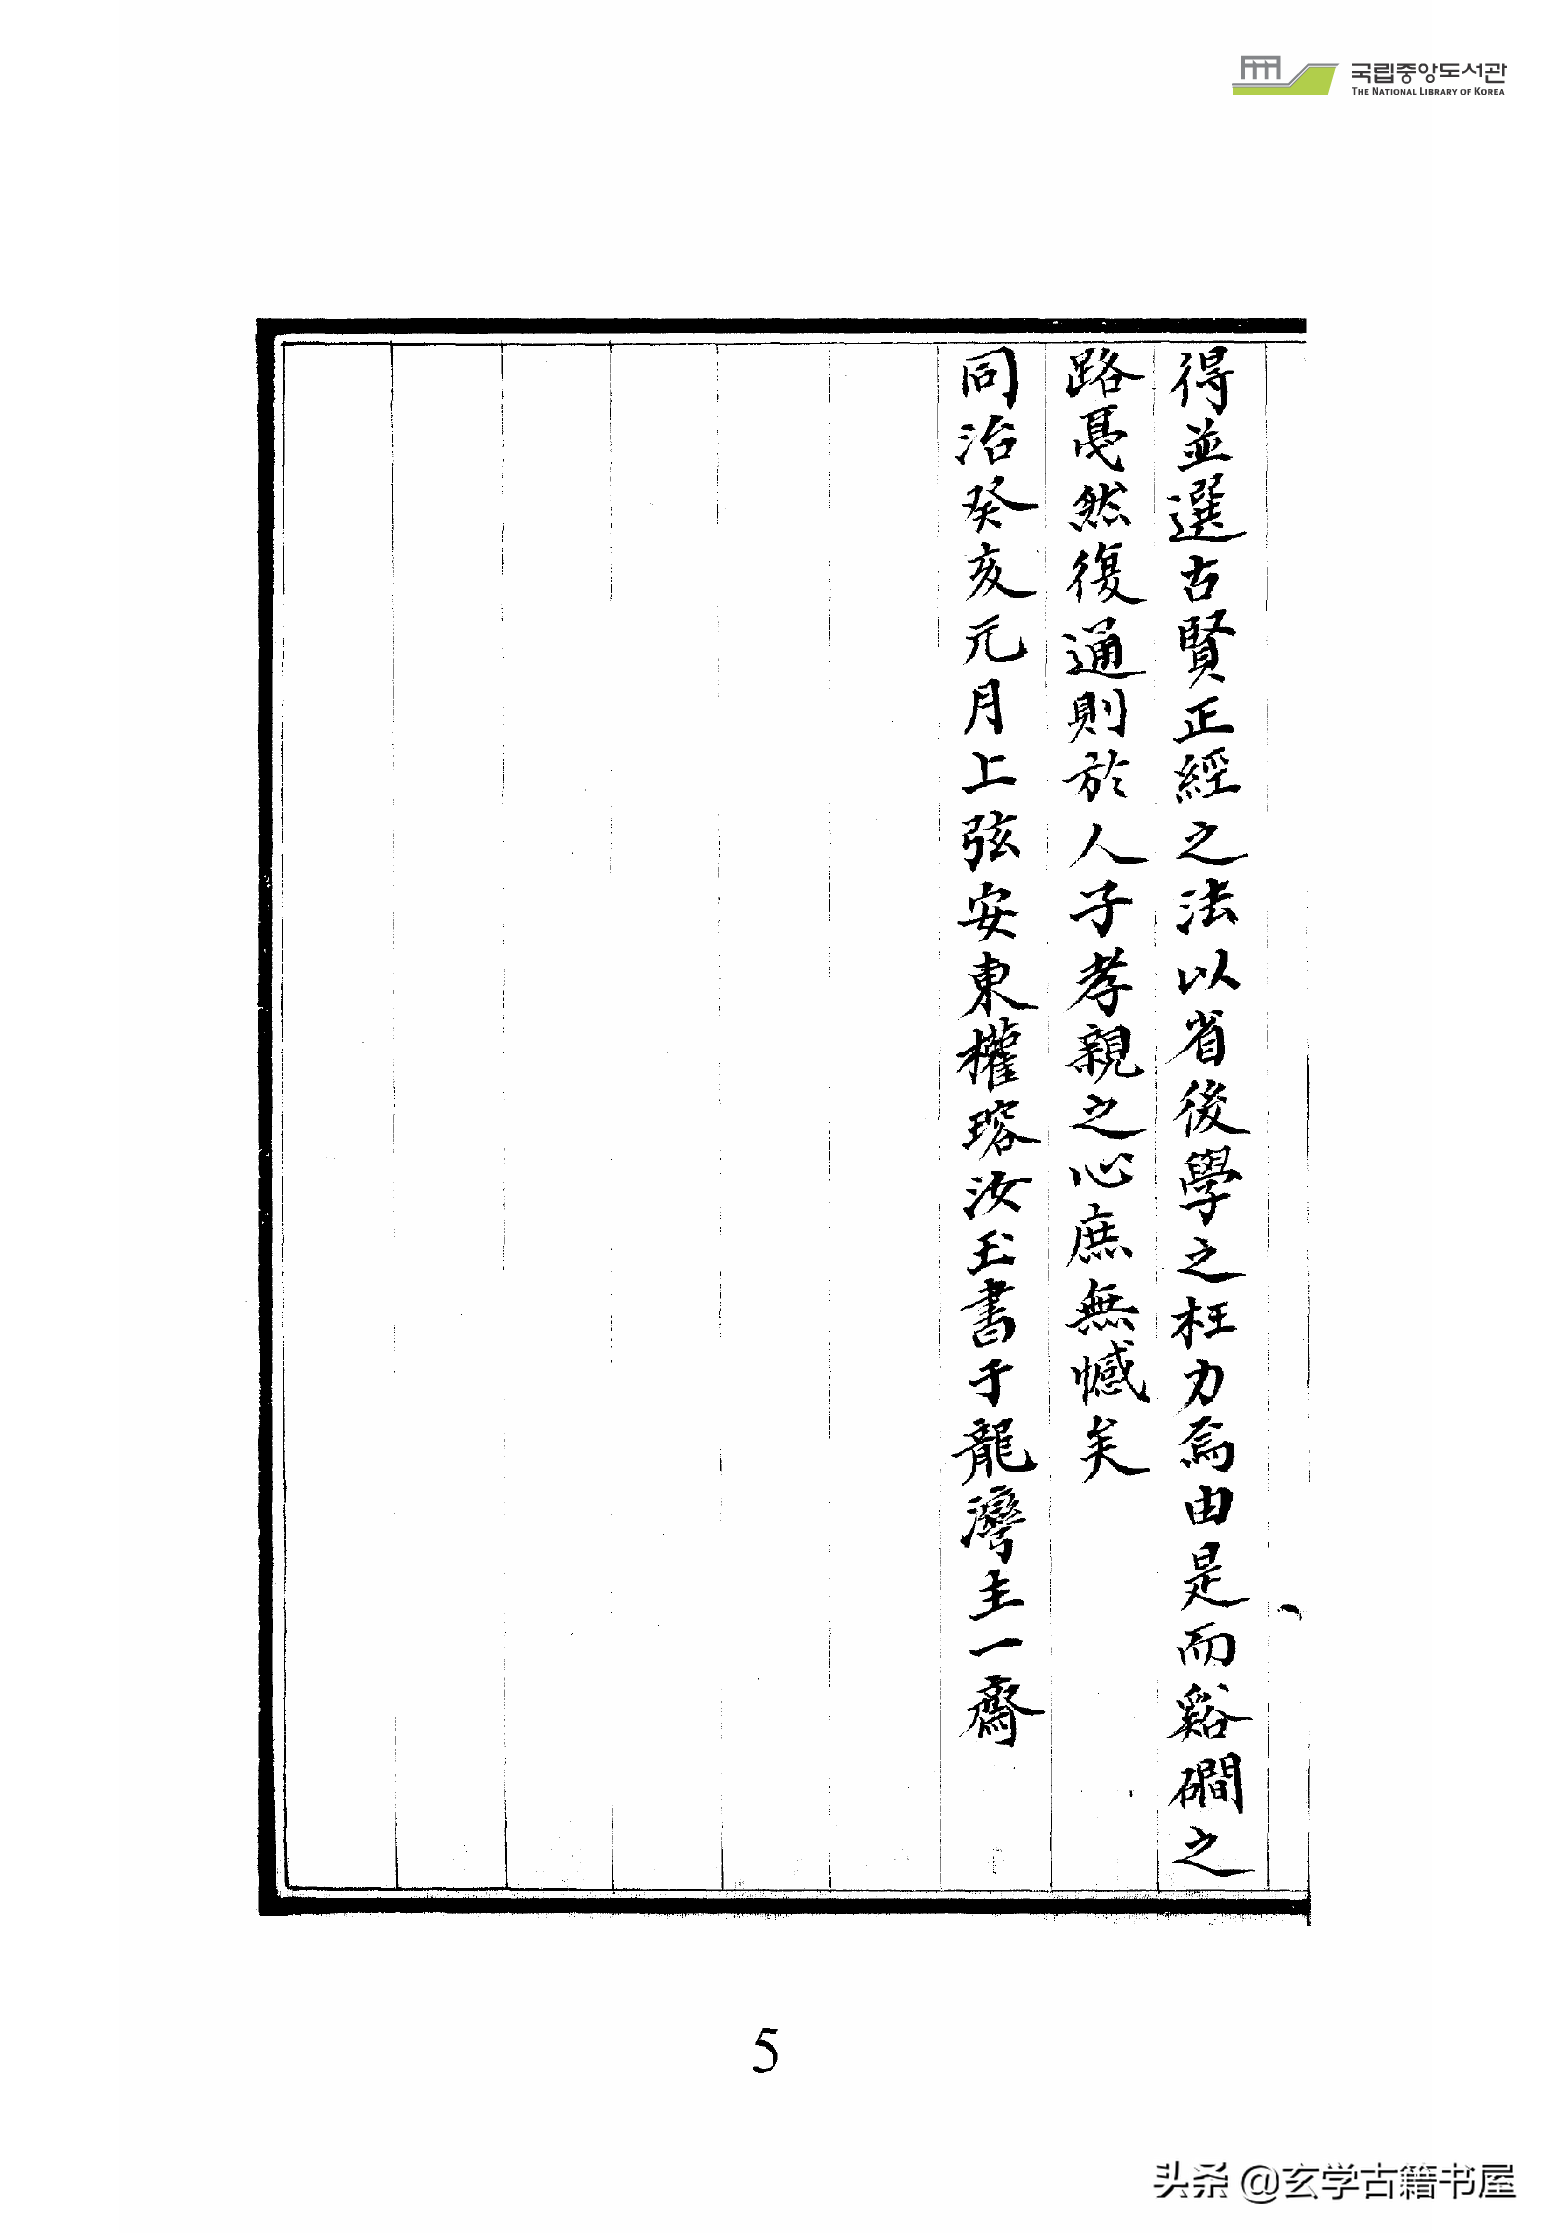 국립중앙도서관
THE NATIONAL LIBRARY OF KOREA
得並選古賢正經之法以省後學之枉力焉由是而谿磵之
路戞然復通則於人子孝親之心庶無憾矣
同治癸亥元月上弦安東權瑢汝玉書于龍灣主一齋
5
头条 @玄学古籍书屋